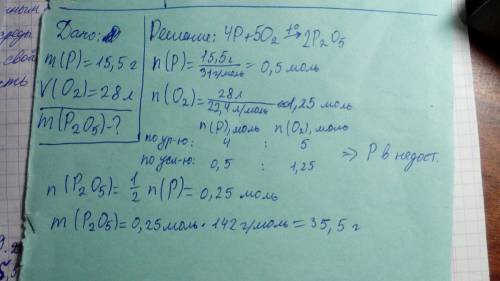 Дано:
m(P)=15,5г
V(O₂)=28л
m(P₂O₅)-?
Решение: 4P+5O₂ t°→ 2P₂O₅
n(P)=15,5г/31г/моль=0,5 моль
n(O₂)=28л/22,4л/моль=1,25 моль
n(P), моль n(O₂), моль
по ур-ю: 4 : 5
по усл-ю: 0,5 : 1,25 => P в недост.
n(P₂O₅)=1/2 n(P)=0,25 моль
m(P₂O₅)=0,25моль·142г/моль=35,5г